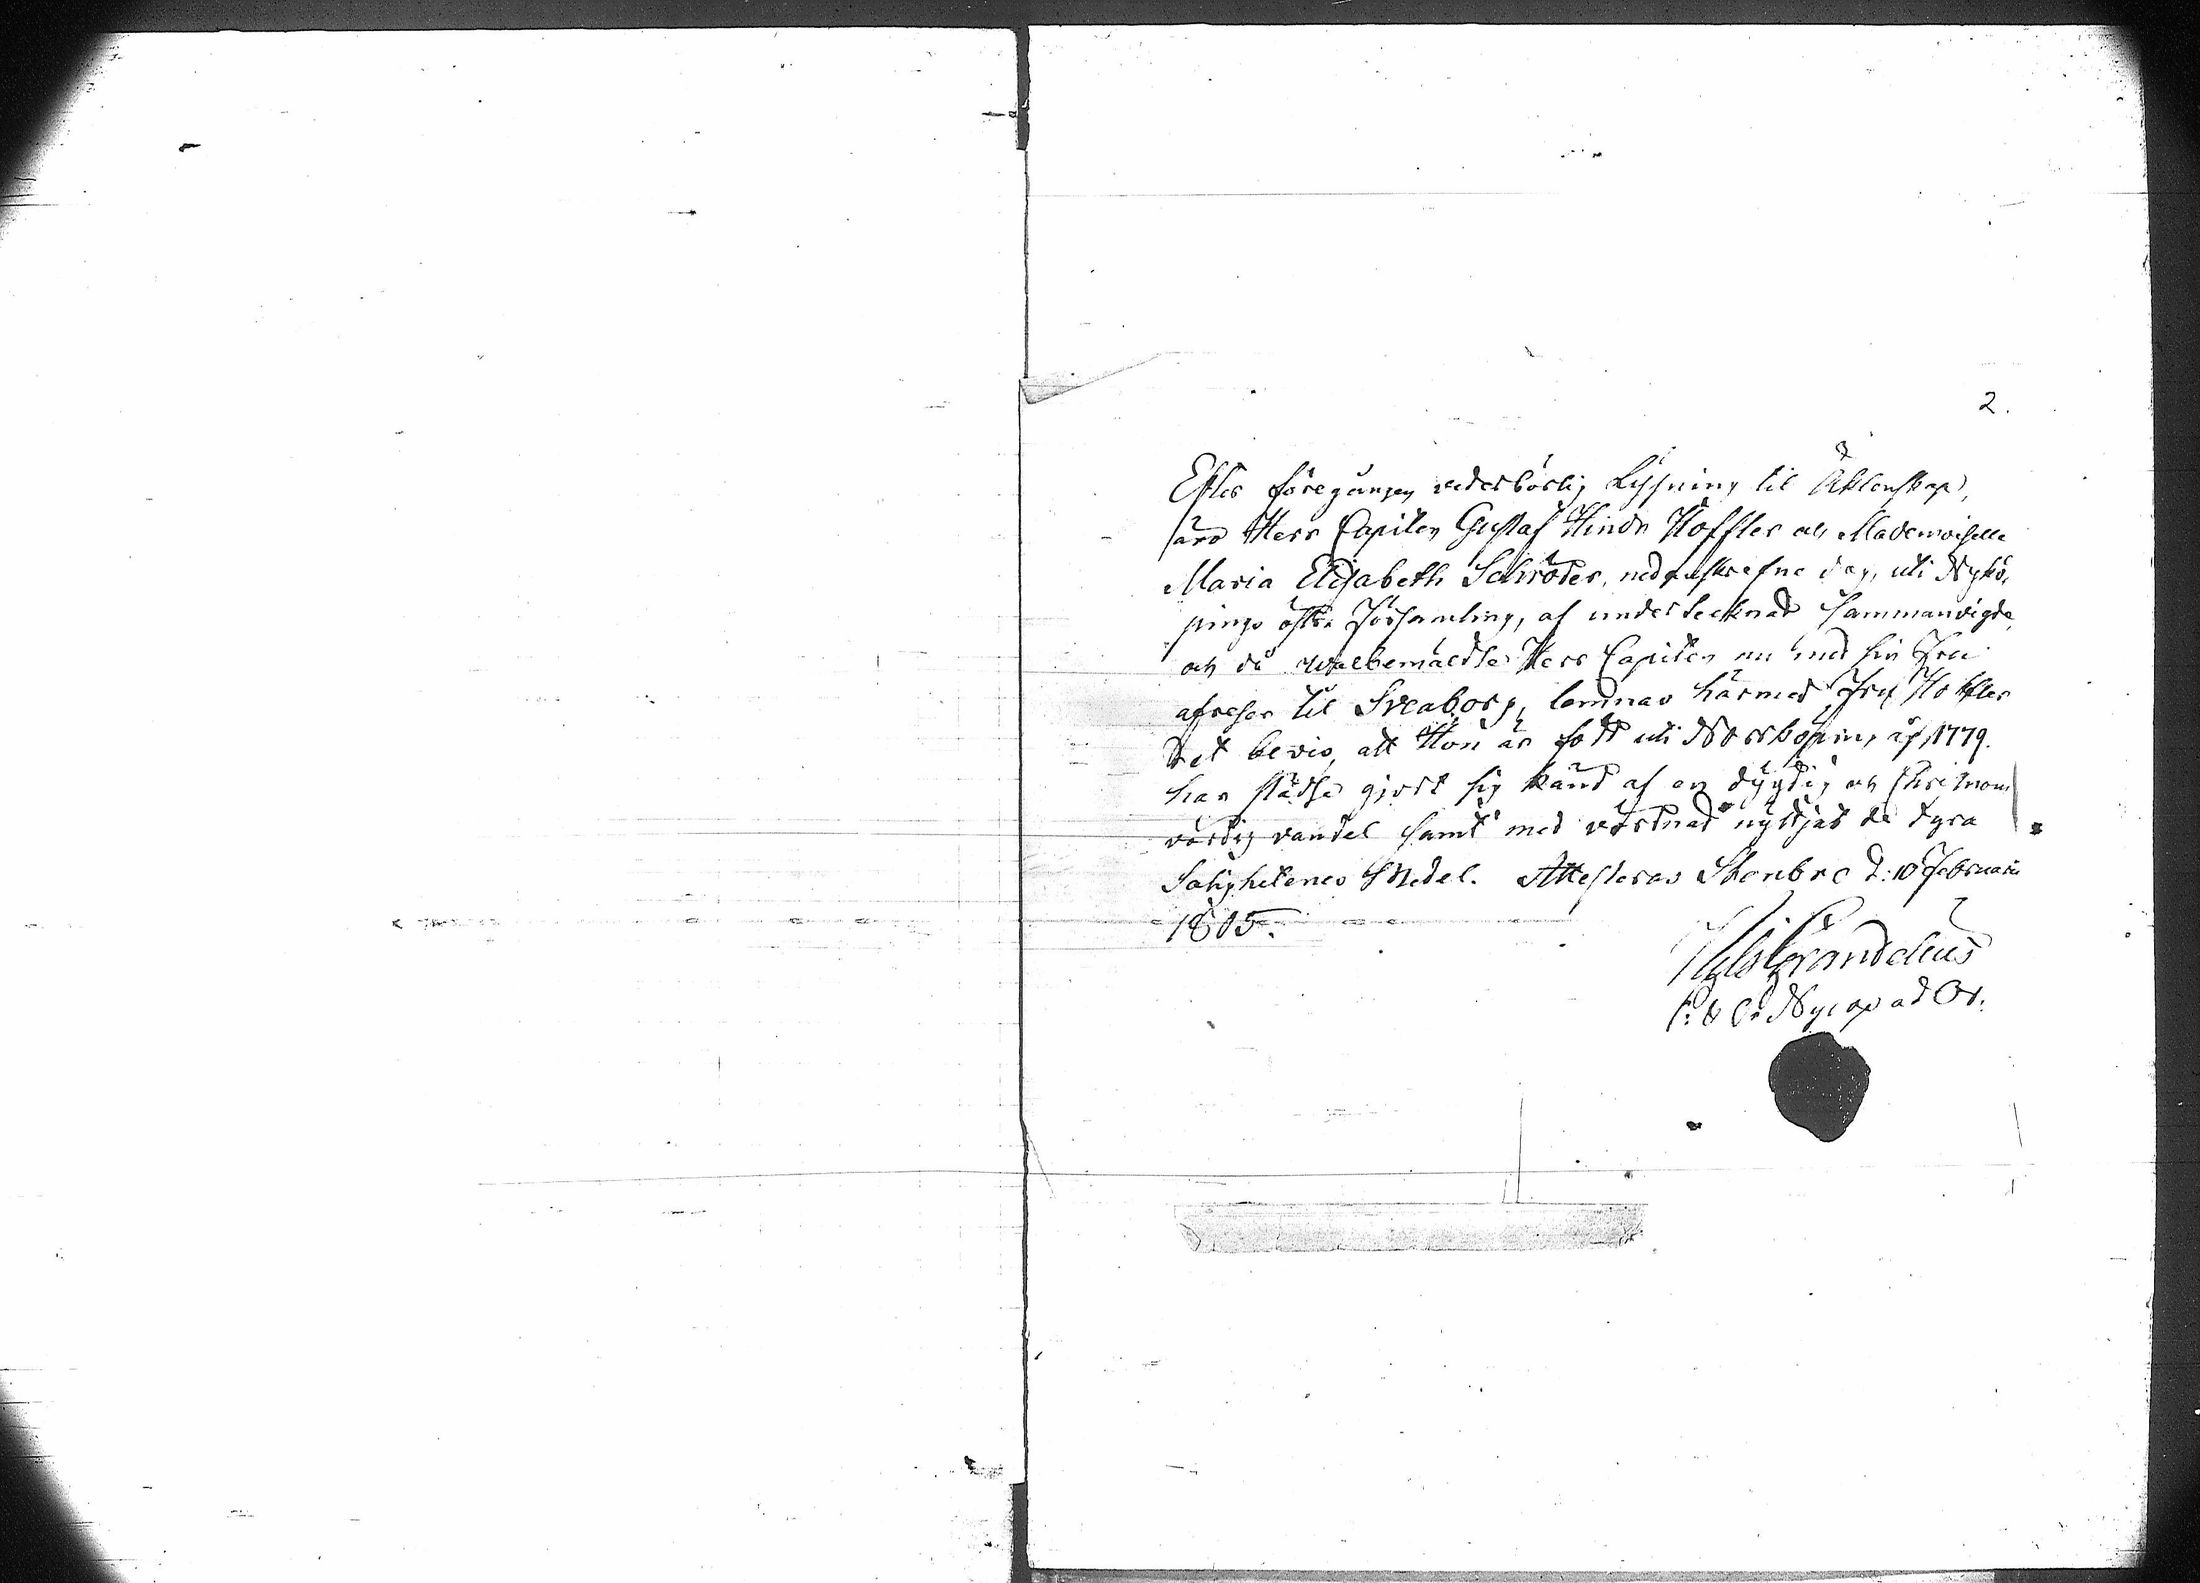 2.
Efter föregången vederbörlig Lysning til Äktenskap,
äro Herr Capiten Gustaf Hindr Höffler och Mademoiselle
Maria Elisabeth Schröder, nedanskrefne dag, uti Nykö,
pings östra Församling, af undertecknad Sammanvigde,
och då wälbemäldte Herr Capiten nu med sin Fru
afreser til Sveaborg, lemnas härmed Fru Höffler
det bevis, att Hon är född uti Norrköping år 1779.
har städse gjort sig känd af en dygdig och Christnom
värdig vandel samt med vördnad nyttjad de dyra
Salighetenes Medel. Attesteras Stenbro d: 10 Februarii
1805.
Grandelius
P: & Pr. Nycop ad Or.